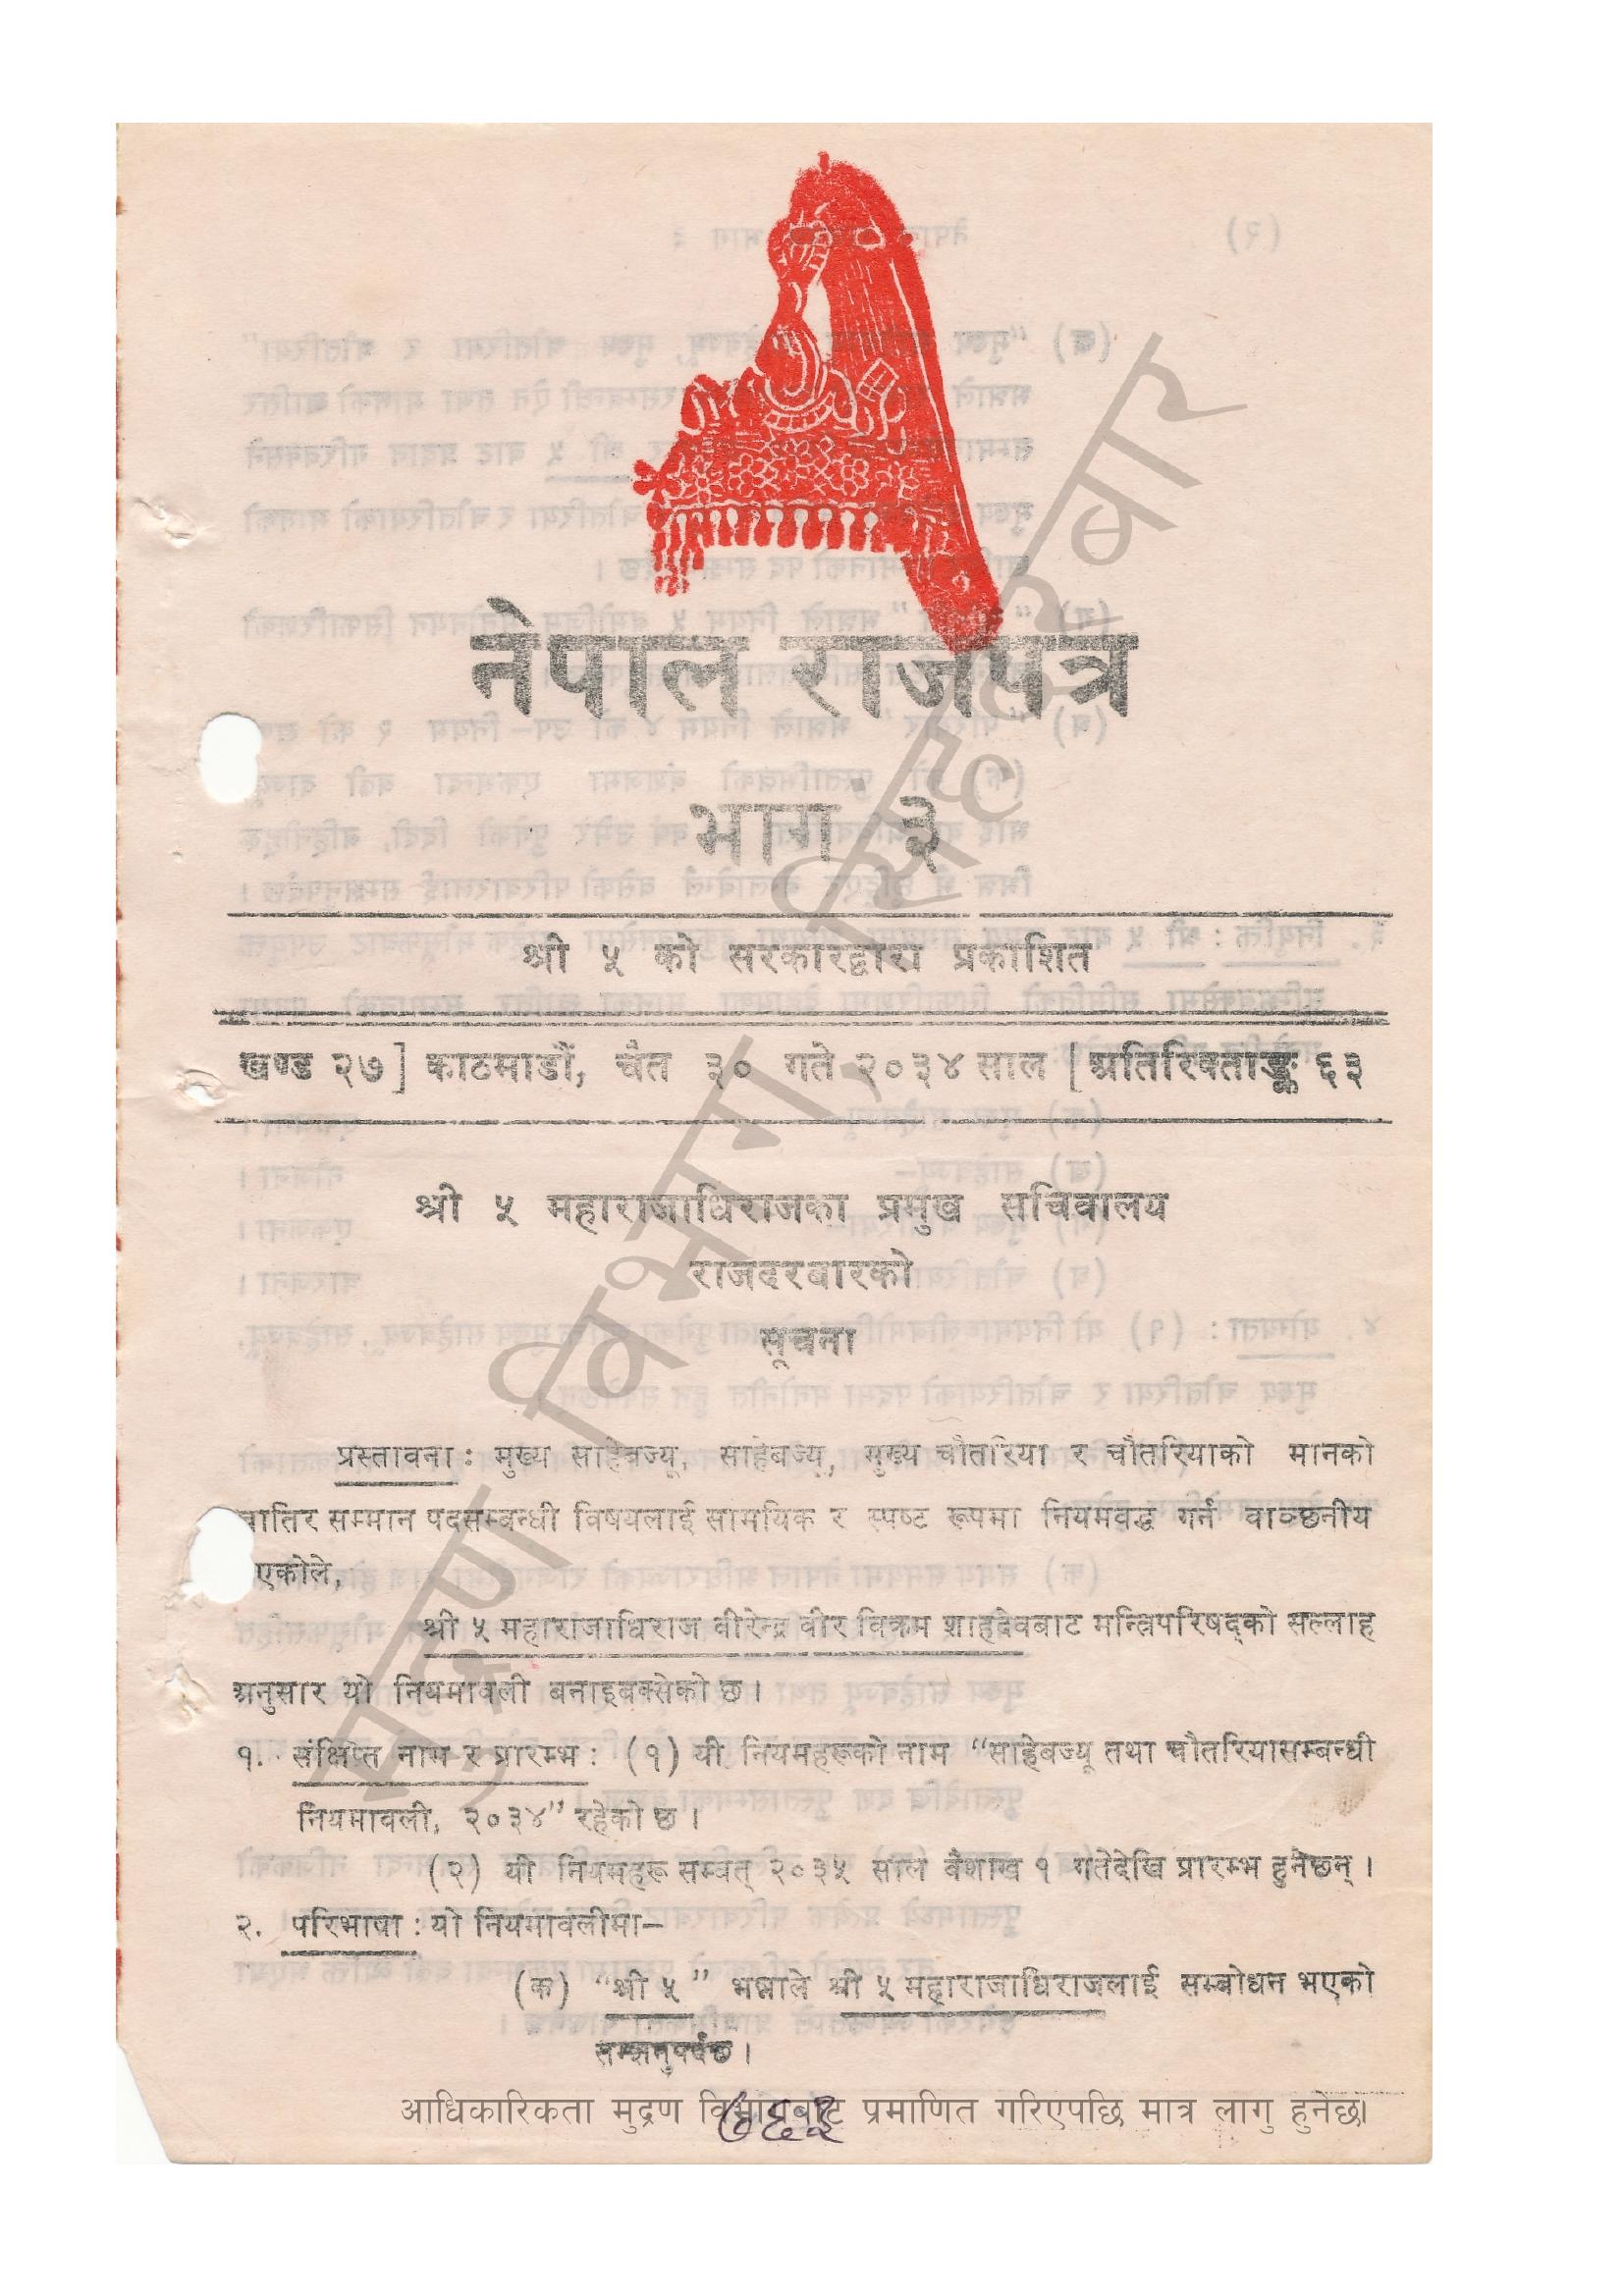 नेपाल राजपत्र
भाग ३
श्री ५ को सरकारद्वारा प्रकाशित
खण्ड २७] काठमाडौं, चैत ३० गते २०३४ साल [अतिरिक्ताङ्क ६३
श्री ५ महाराजाधिराजका प्रमुख सचिवालय
राजदरबारको
सूचना
प्रस्तावना : मुख्य साहेबज्यू, साहेबज्यू, मुख्य चौतरिया र चौतरियाको मानको
खातिर सम्मान पदसम्बन्धी विषयलाई सामयिक र स्पष्ट रूपमा नियमवद्ध गर्न वाञ्छनीय
भएकोले,
श्री ५ महाराजाधिराज वीरेन्द्र वीर विक्रम शाहदेवबाट मन्त्रिपरिषद्को सल्लाह
अनुसार यो नियमावली बनाइबक्सेको छ ।
१. संक्षिप्त नाम र प्रारम्भ : (१) यी नियमहरूको नाम “साहेबज्यू तथा चौतरियासम्बन्धी
नियमावली, २०३४” रहेको छ ।
(२) यी नियमहरू सम्वत् २०३५ साल वैशाख १ गतेदेखि प्रारम्भ हुनेछन् ।
२. परिभाषा : यो नियमावलीमा–
(क) “श्री ५” भन्नाले श्री ५ महाराजाधिराजलाई सम्बोधन भएको
सम्झनुपर्दछ ।
आधिकारिकता मुद्रण विभागबाट प्रमाणित गरिएपछि मात्र लागु हुनेछ।
७६३
मुद्रण विभाग, सिंहदरबार